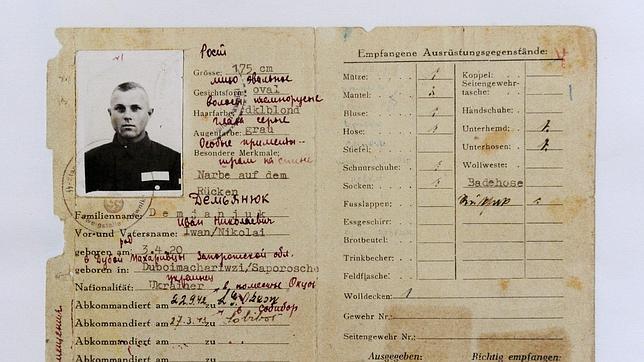 Рост
Grösse: 175 cm
лицо овальное
Gesichtsform: oval
волосы темнорусые
Haarfarbe: dklblond
глаза серые
Augenfarbe: grau
Особые приметы -
Besondere Merkmale:
шрам на спине
Narbe auf dem
Rücken
Демьянюк
Familienname: Demjanjuk
Иван Николаевич
Vor- und Vatersname: Iwan/Nikolai
род
geboren am: 3.4.20
Запорожской обл.
geboren in: Duboimachariwzi/Saporosche
украинец
Nationalität: Ukrainer
Abkommandiert am 22.9.42 zu L.G. Okzow
Собибор
Abkommandiert am 27.3.43 zu Sobibor
Abkommandiert am zu
Abkommandiert am zu
Abkommandiert am zu
Empfangene Ausrüstungsgegenstände:
Mütze: 1
Mantel:
Bluse: 1
Hose:
Stiefel:
Schnurschuhe:
Socken:
Fusslappen:
Essgeschirr:
Brotbeutel:
Trinkbecher:
Feldflasche:
Wolldecken: 1
Gewehr Nr.:
Seitengewehr Nr.:
Koppel:
Seitengewehr-
tasche:
Handschuhe:
Unterhemd:
Unterhosen:
Wollweste:
Badehose
Ausgegeben: Richtig empfangen: